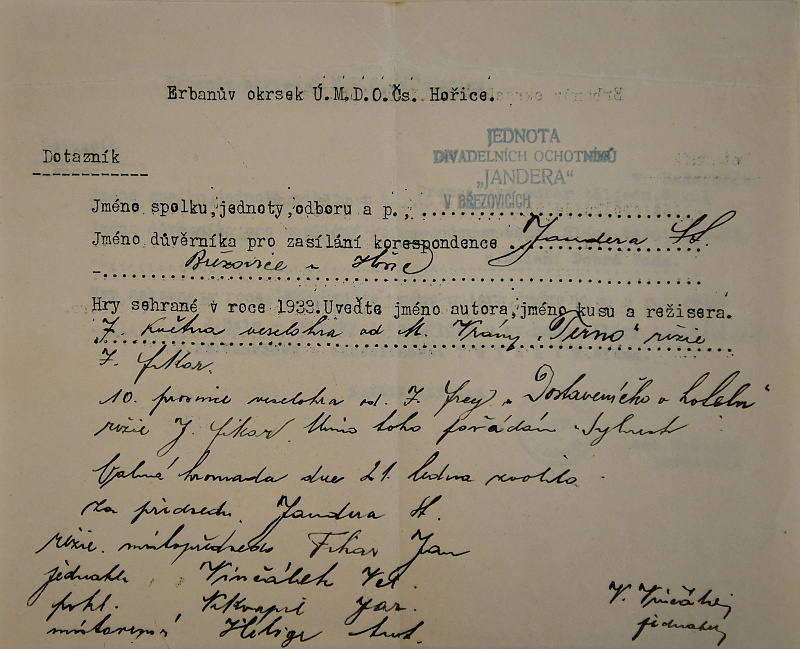 Erbanův okrsek Ú.M.D.O.Čs. Hořice.
JEDNOTA
DIVADELNÍCH OCHOTNÍKŮ
„JANDERA"
V BŘEZOVICÍCH
Dotazník
Jméno spolku,jednoty,odboru a p.,
Jméno důvěrníka pro zasílání korespondence Jandera St.
Březovice u Hořic
Hry sehrané v roce 1933.Uveďte jméno autora,jméno kusu a režisera.
7. května veselohra od M. Vrány „Terno" režie
J. Fikar.
10. prosince veselohra od J. Frey „Dostaveníčko v hotelu"
režie J. Fikar. Mimo toho pořádán Sylvestr
Valná hromada dne 21. ledna zvolila
za předsedu Jandera St.
režie. místopředseda Fikar Jan
jednatel Vinčálek
pokl. Skvapil Jar.
V. Vinčálek
jednatel